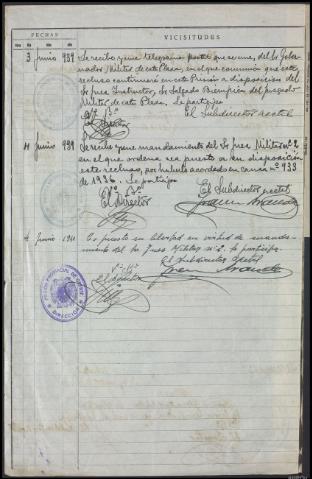 FECHAS VICISITUDES
3 Junio 939 Se recibe y une telegrama postal que se une, del Sr. Gober-
nador Militar de esta Plaza, en el que comunica que este
recluso continuará en esta Prisión a disposición del
Sr Juez Instructor, Sr. Salgado Biempica del juzgado
Militar de esta Plaza. Lo participo
Vº Bº El Subdirector acctal
El Director
11 Junio 939 Se recibe y une mandamiento del Sr Juez Militar nº 2
en el que ordena sea puesto a su disposición
este recluso, por haberlo acordado en causa nº 933
de 1936. Lo participo
Vº Bº El Subdirector acctal
El Director
4 Junio Es puesto en libertad en virtud de manda-
miento del Sr Juez Militar nº 2. Lo participo
Vº Bº El Subdirector acctal
El Director
PRISION PROVINCIAL
DIRECCION